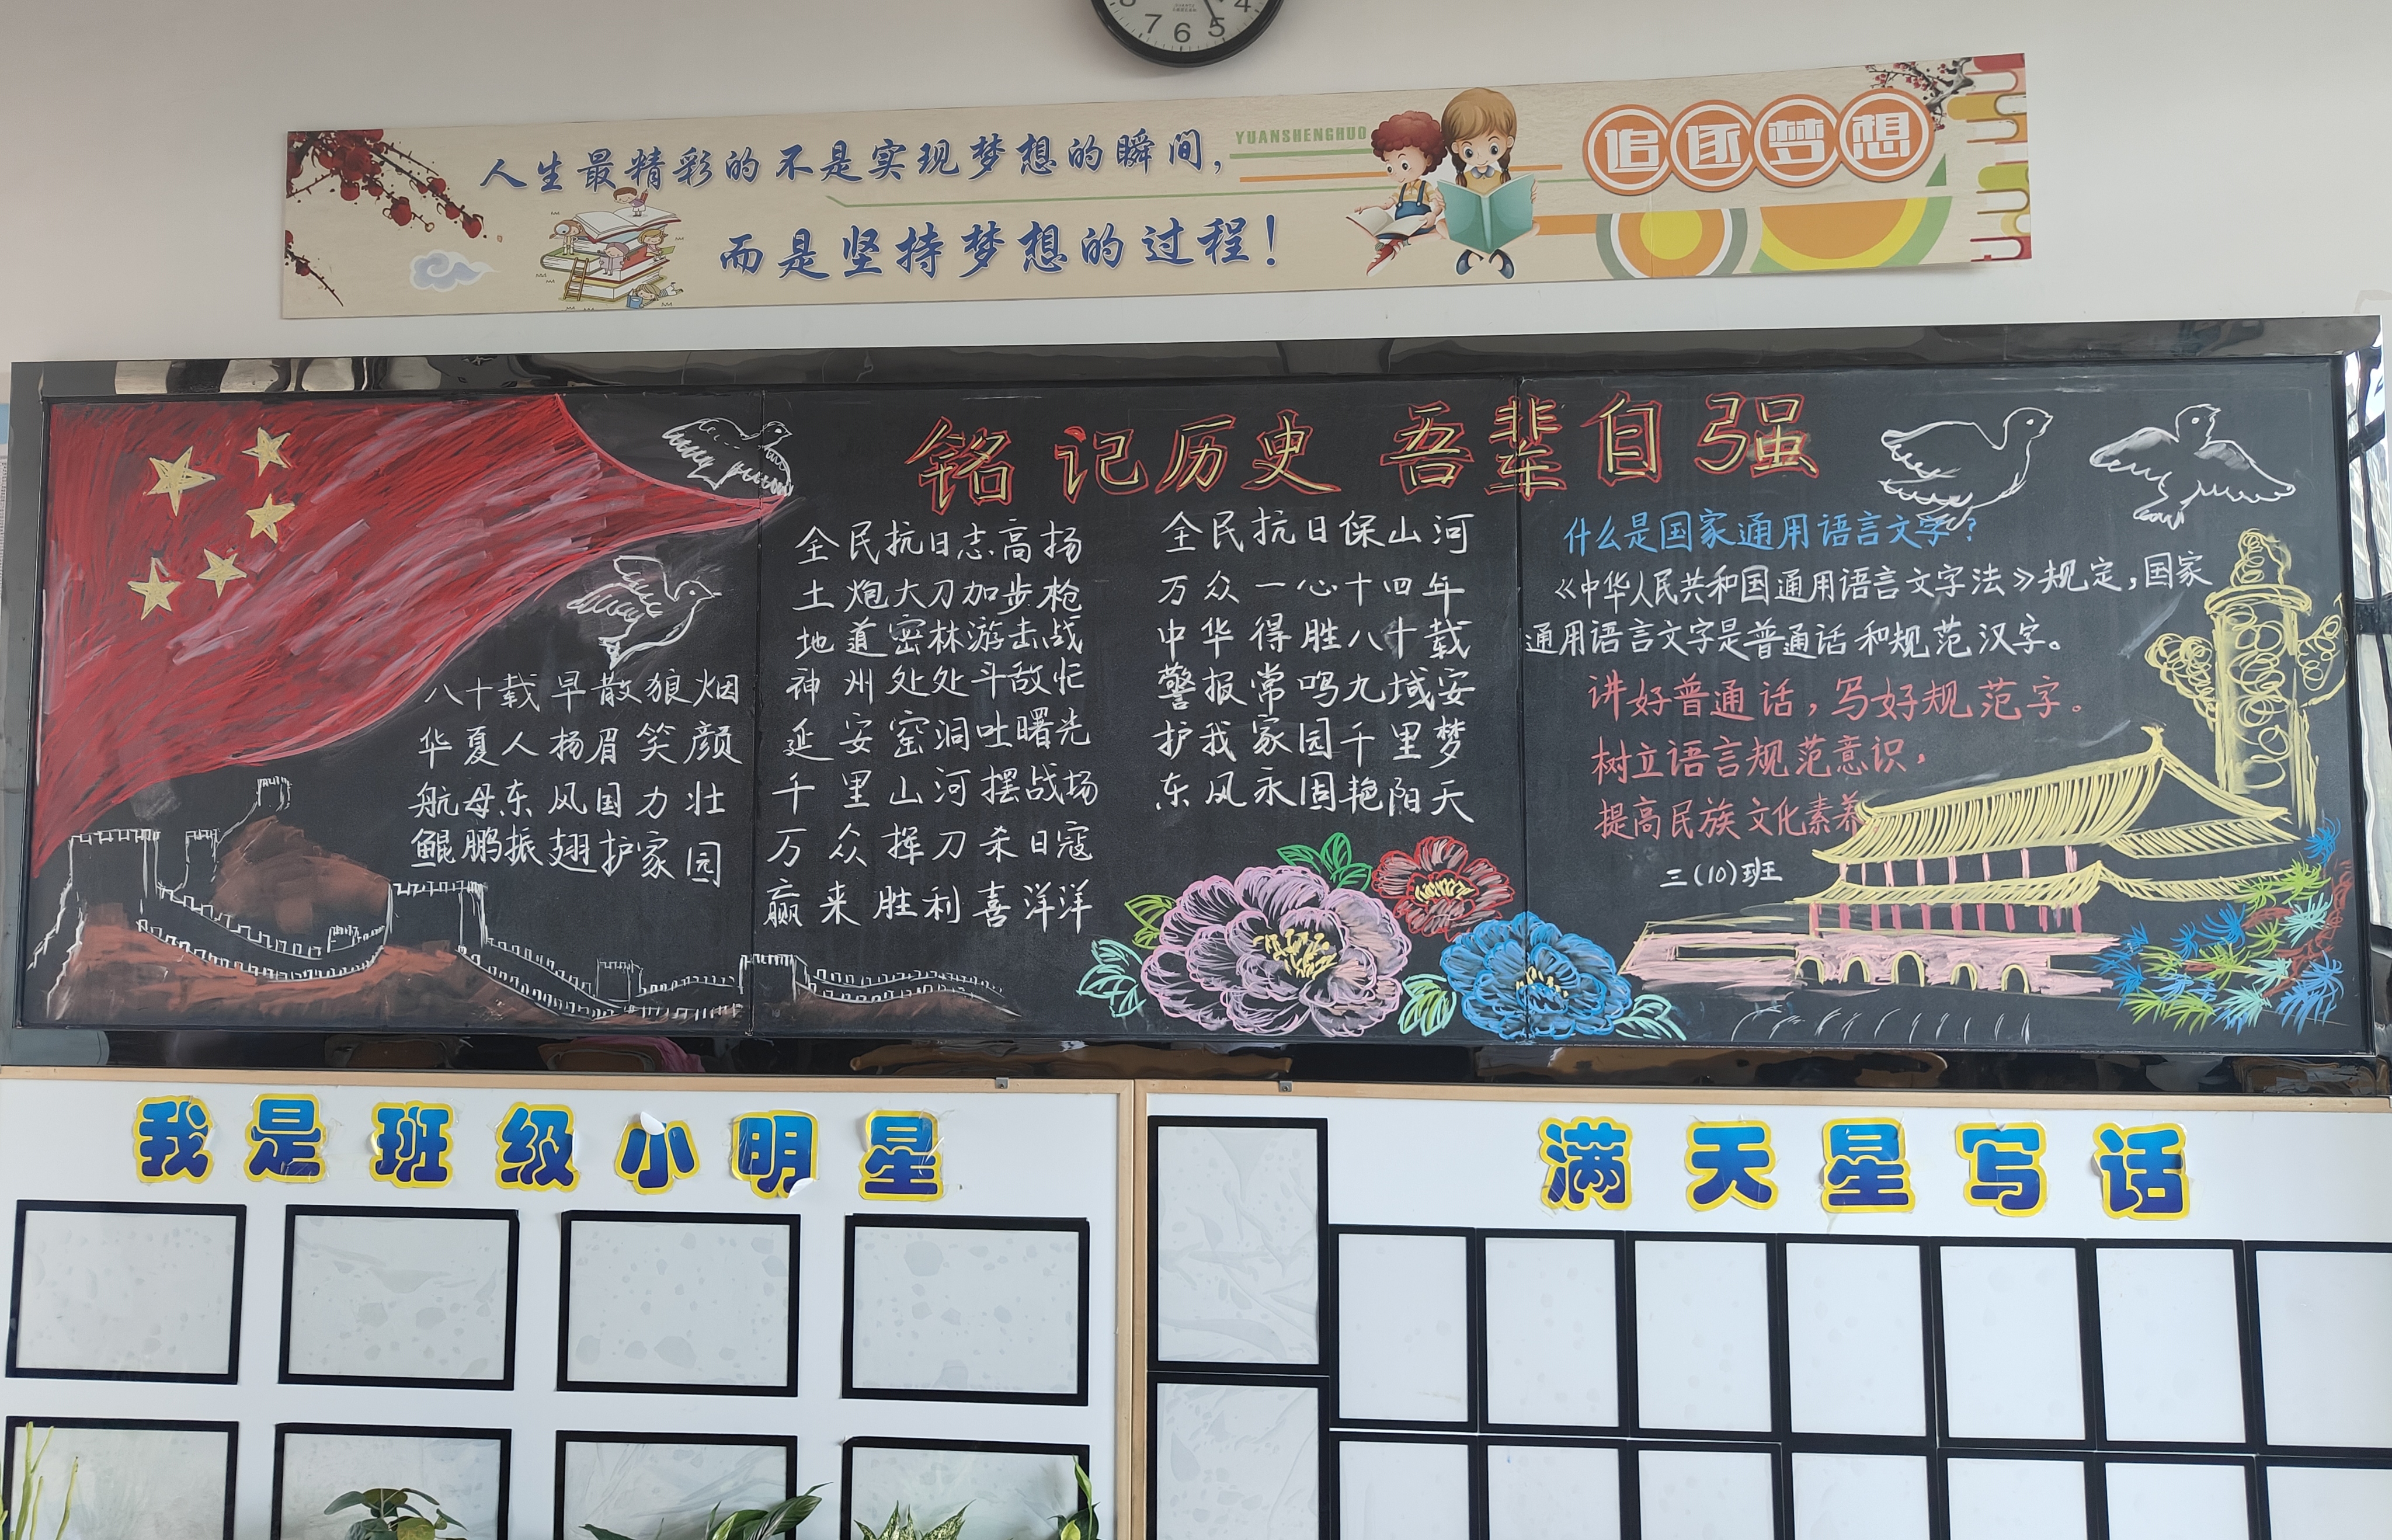 7 6 5 4
人生最精彩的不是实现梦想的瞬间，
而是坚持梦想的过程！
YUANSHENGHUO
追逐梦想
铭记历史 吾辈自强
八十载早散狼烟
华夏人扬眉笑颜
航母东风国力壮
鲲鹏振翅护家园
全民抗日志高扬
土炮大刀加步枪
地道密林游击战
神州处处斗敌忙
延安窑洞吐曙光
千里山河摆战场
万众挥刀杀日寇
赢来胜利喜洋洋
全民抗日保山河
万众一心十四年
中华得胜八十载
警报常鸣九域安
护我家园千里梦
东风永固艳阳天
什么是国家通用语言文字？
《中华人民共和国通用语言文字法》规定，国家
通用语言文字是普通话和规范汉字。
讲好普通话，写好规范字。
树立语言规范意识，
提高民族文化素养
三(10)班
我是班级小明星
满天星写话